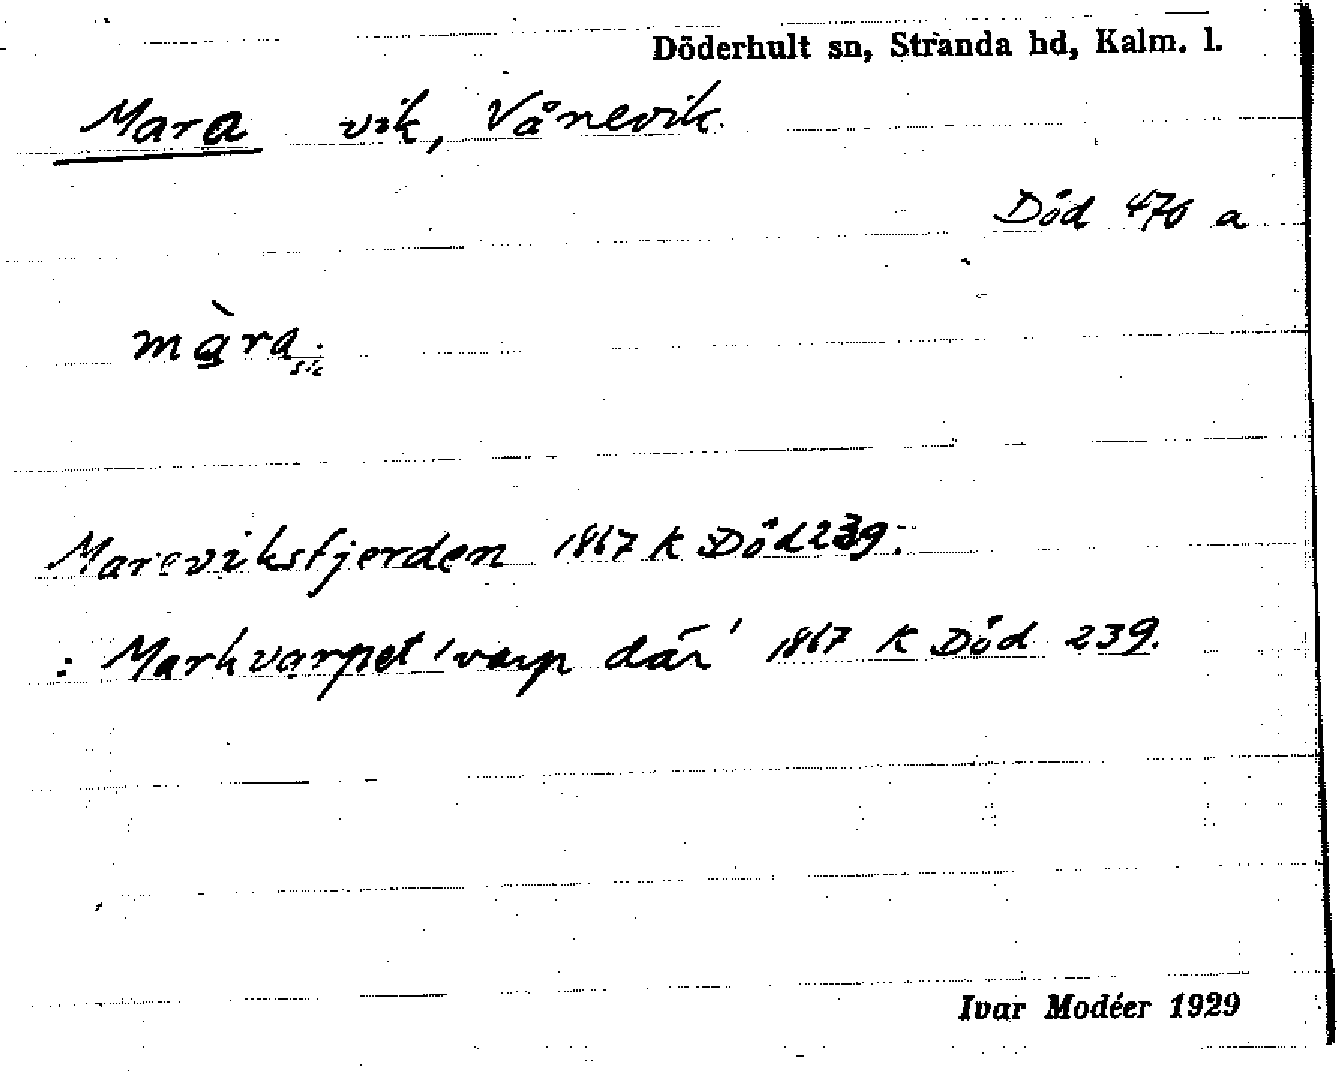 Döderhult sn, Stranda hd, Kalm. l.
Mara vik, Vånevik.
Död 470 a
màra sic
Mareviksfjerden 1867 K Död 239.
: Markvarpet 'varp där' 1867 K Död 239.
Ivar Modéer 1929